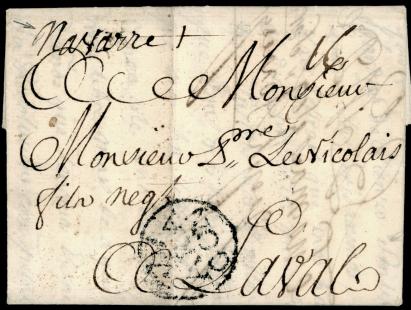 Navarre +
16
Monsieur
Monsieur Pre LeNicolais
fils negt
A Laval